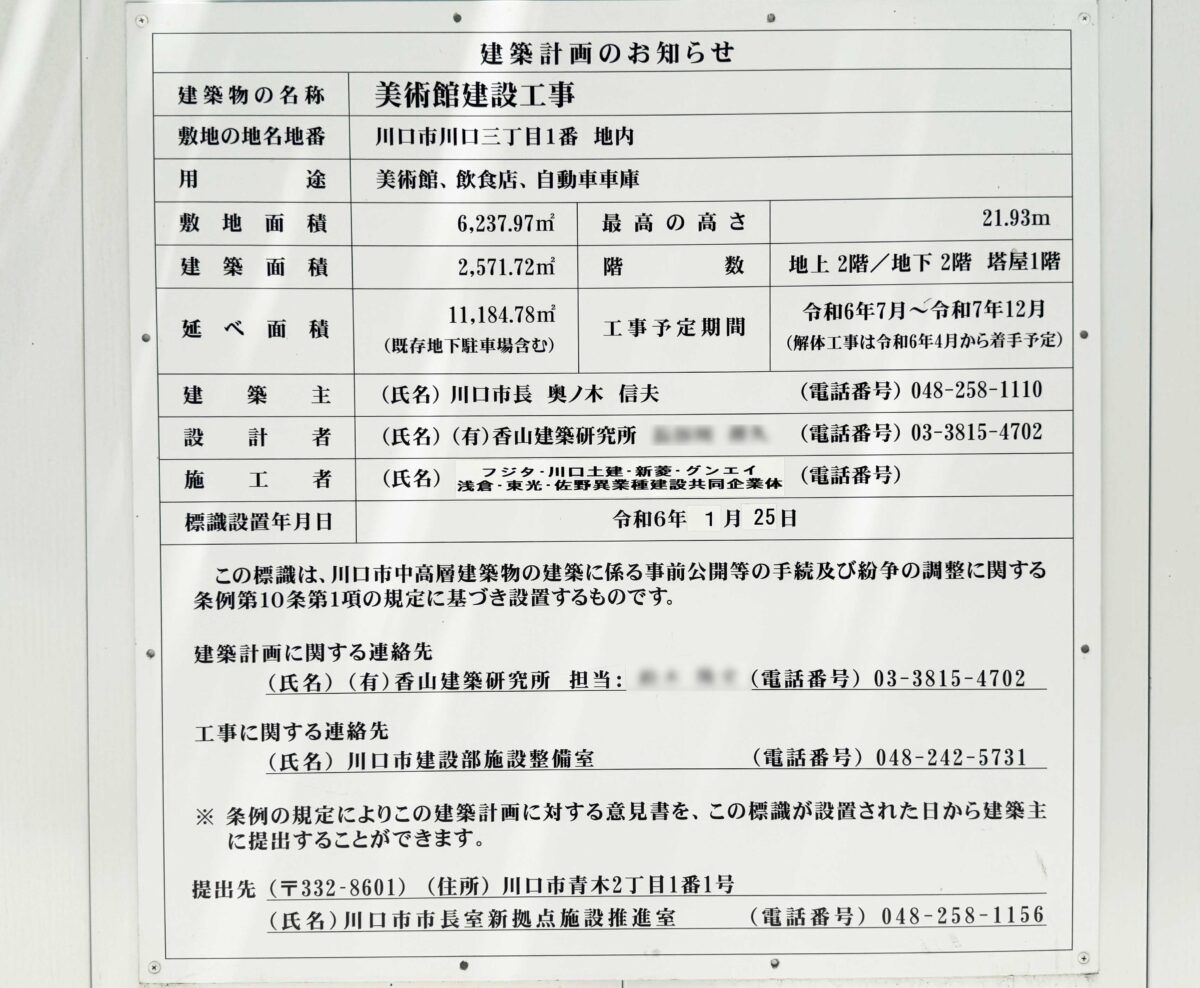 建築計画のお知らせ
建築物の名称 美術館建設工事
敷地の地名地番 川口市川口三丁目1番 地内
用途 美術館、飲食店、自動車車庫
敷地面積 6,237.97㎡ 最高の高さ 21.93m
建築面積 2,571.72㎡ 階数 地上 2階／地下 2階 塔屋1階
延べ面積 11,184.78㎡ (既存地下駐車場含む) 工事予定期間 令和6年7月～令和7年12月 (解体工事は令和6年4月から着手予定)
建築主 (氏名) 川口市長 奥ノ木 信夫 (電話番号) 048-258-1110
設計者 (氏名) (有)香山建築研究所 (電話番号) 03-3815-4702
施工者 (氏名) フジタ・川口土建・新菱・グンエイ 浅倉・東光・佐野異業種建設共同企業体 (電話番号)
標識設置年月日 令和6年 1月 25日
この標識は、川口市中高層建築物の建築に係る事前公開等の手続及び紛争の調整に関する
条例第10条第1項の規定に基づき設置するものです。
建築計画に関する連絡先
(氏名) (有)香山建築研究所 担当: (電話番号) 03-3815-4702
工事に関する連絡先
(氏名) 川口市建設部施設整備室 (電話番号) 048-242-5731
※ 条例の規定によりこの建築計画に対する意見書を、この標識が設置された日から建築主
に提出することができます。
提出先 (〒332-8601) (住所) 川口市青木2丁目1番1号
(氏名) 川口市市長室新拠点施設推進室 (電話番号) 048-258-1156